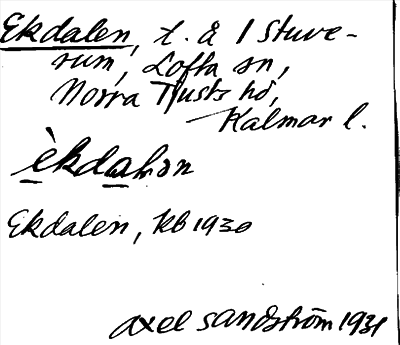 Ekdalen, t. å 1 Stuve-
rum, Lofta sn,
Norra Tjusts hd,
Kalmar l.
èkdahən
Ekdalen, kb 1930
Axel Sandström 1931